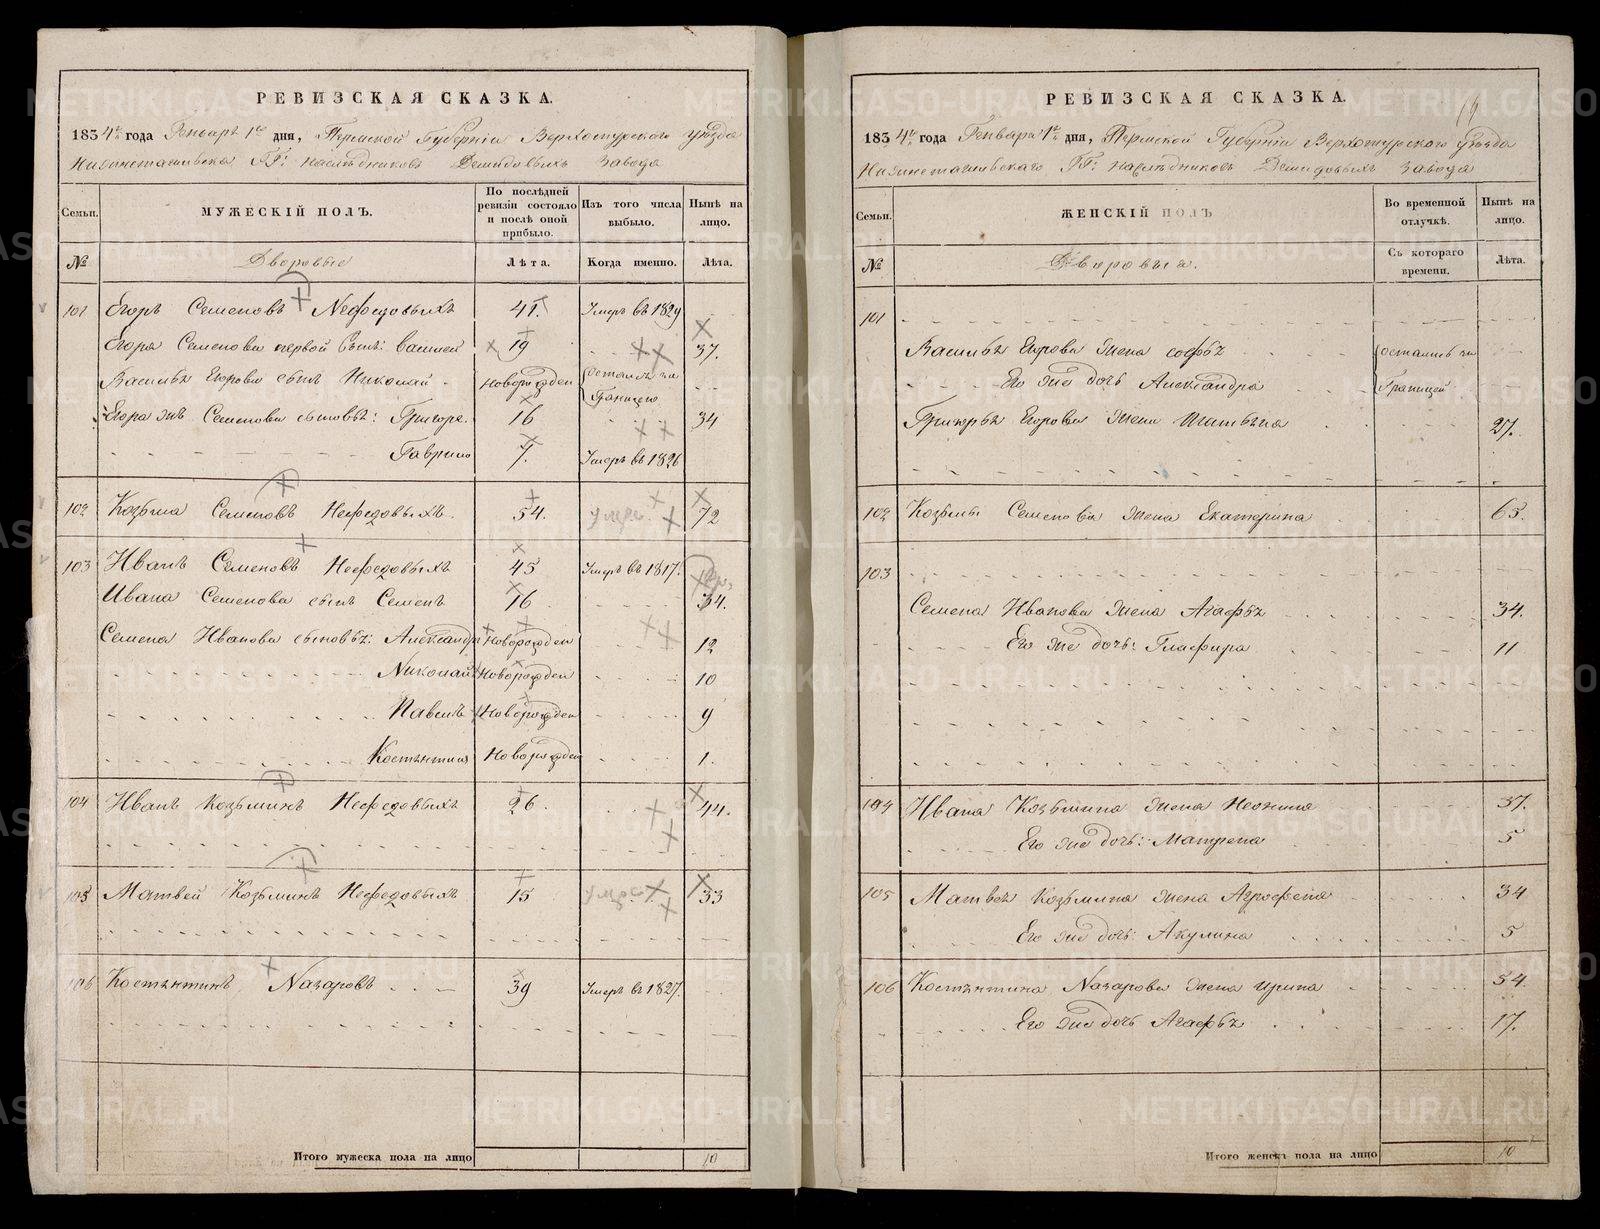 РЕВИЗСКАЯ СКАЗКА.
1834го года Генваря 1го дня, Пермской Губерніи Верхотурского уѣзда
Нижнетагильска ГГ: наслѣдниковъ Демидовыхъ завода
Семьи.
МУЖЕСКІЙ ПОЛЪ.
По послѣдней ревизіи состояло и послѣ оной прибыло.
Изъ того числа выбыло.
Нынѣ на лицо.
№ Дворовые Лѣта. Когда именно. Лѣта.
101 Егоръ Семеновъ Нефедовыхъ 41. Умеръ въ 1829
Егора Семенова первой сынъ: Василей 19 37.
Василья Егорова сынъ Николай Новорожден остались за Границею
Егора жъ Семенова сыновья: Григоре. 16 34
Гаврило 7. Умеръ въ 1826
102 Козьма Семеновъ Нефедовыхъ. 54. умре 72
103 Иванъ Семеновъ Нефедовыхъ 45 Умеръ въ 1817.
Ивана Семенова сынъ Семенъ 16 34.
Семена Иванова сыновья: Александръ Новорожден 12
Николай Новорожден 10
Павелъ Новорожден 9
Костянтин Новорожден 1.
104 Иванъ Козьминъ Нефедовыхъ 26. 44.
105 Матвей Козьминъ Нефедовыхъ 15 умре 33
106 Костянтинъ Назаровъ 39 Умеръ въ 1827.
Итого мужеска пола на лицо 10
РЕВИЗСКАЯ СКАЗКА.
1834го года Генваря 1го дня, Пермской Губерніи Верхотурского уѣзда
Нижнетагильскаго ГГ: наслѣдниковъ Демидовыхъ завода
Семьи.
ЖЕНСКІЙ ПОЛЪ
Во временной отлучкѣ.
Нынѣ на лицо.
№ Дворовыя. Съ котораго времени. Лѣта.
101
Василья Егорова жена Софья остались за
Его же дочь Александра Границей
Григорья Егорова жена 27.
102 Козьмы Семенова жена Екатерина 63.
103
Семена Иванова жена Агафья 34.
Его же дочь: Глафира 11
104 Ивана Козьмина жена Неонила 37.
Его же дочь: Матрена 5
105 Матвея Козьмина жена Агрофена 34
Его же дочь: Акулина 5
106 Костянтина Назарова жена Ирина 54.
Его же дочь Агафья 17.
Итого женскъ пола на лицо 10
METRIKI.GASO-URAL.RU